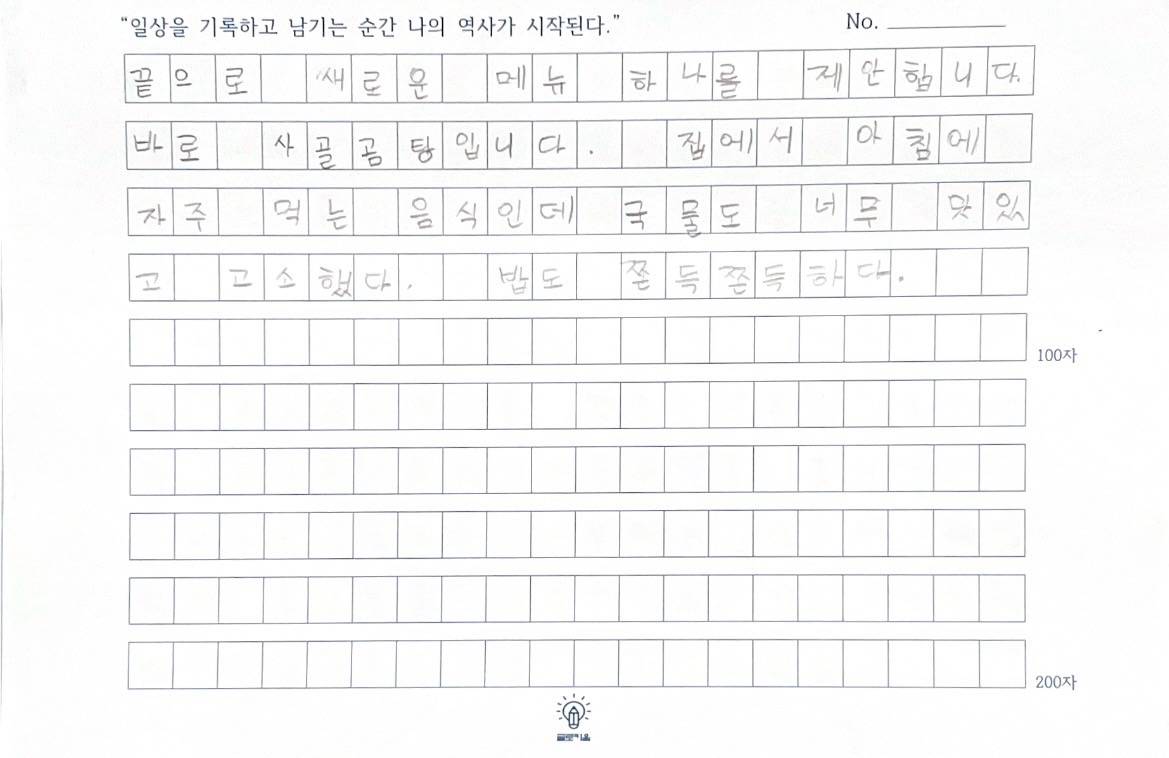 “일상을 기록하고 남기는 순간 나의 역사가 시작된다.” No.
끝으로 새로운 메뉴 하나를 제안합니다.
바로 사골곰탕입니다. 집에서 아침에
자주 먹는 음식인데 국물도 너무 맛있
고 고소했다. 밥도 쫀득쫀득하다.
100자
200자
글로키움